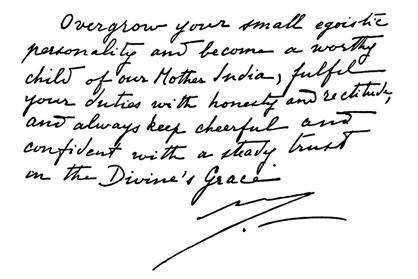 Overgrow your small egoistic
personality and become a worthy
child of our Mother India, fulfil
your duties with honesty and rectitude,
and always keep cheerful and
confident with a steady trust
in the Divine's Grace.